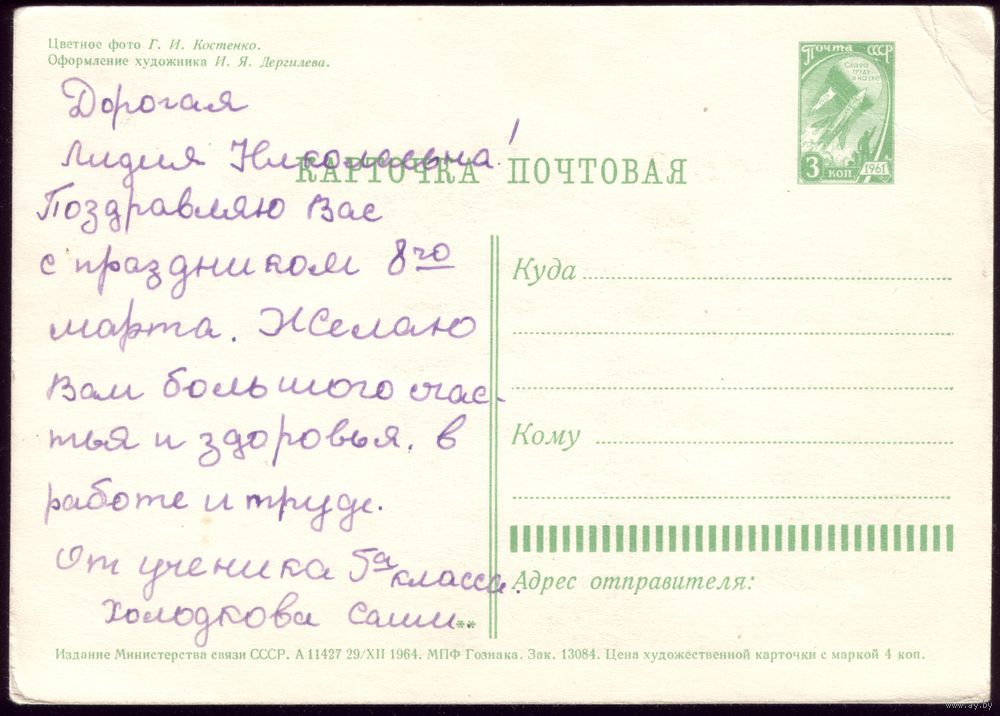 Цветное фото Г. И. Костенко.
Оформление художника И. Я. Дергилева.
Почта СССР
Слава
труду
и науке
3 коп
1961
КАРТОЧКА ПОЧТОВАЯ
Дорогая
Лидия Николаевна!
Поздравляю Вас
с праздником 8го
марта. Желаю
Вам большого счас-
тья и здоровья. в
работе и труде.
От ученика 5а класса.
Холодкова Саши..
Куда
Кому
Адрес отправителя:
**
Издание Министерства связи СССР. А 11427 29/XII 1964. МПФ Гознака. Зак. 13084. Цена художественной карточки с маркой 4 коп.
www.ay.by